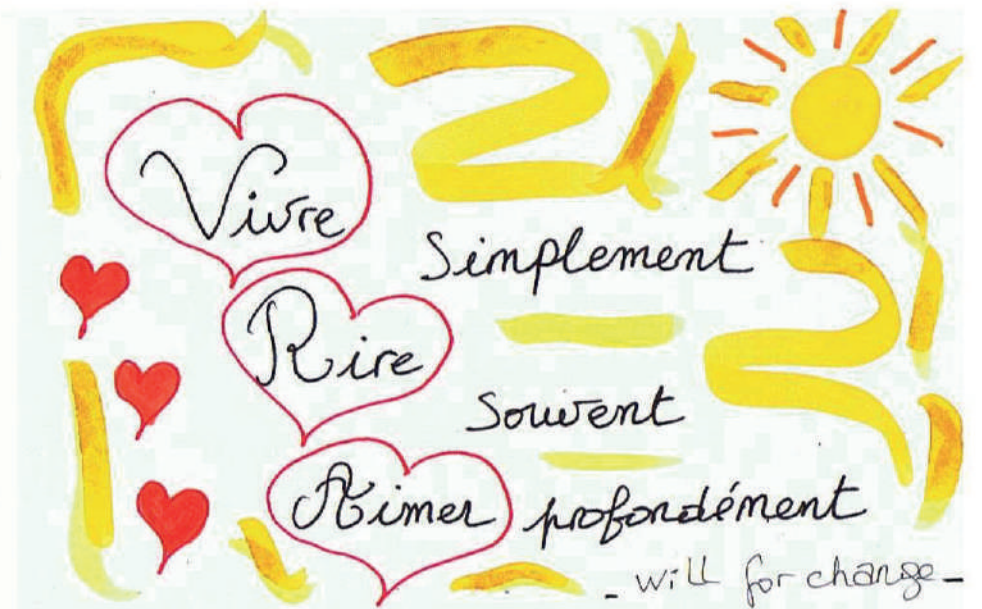 Vivre
Simplement
Rire
Souvent
Aimer profondément
- will for change -